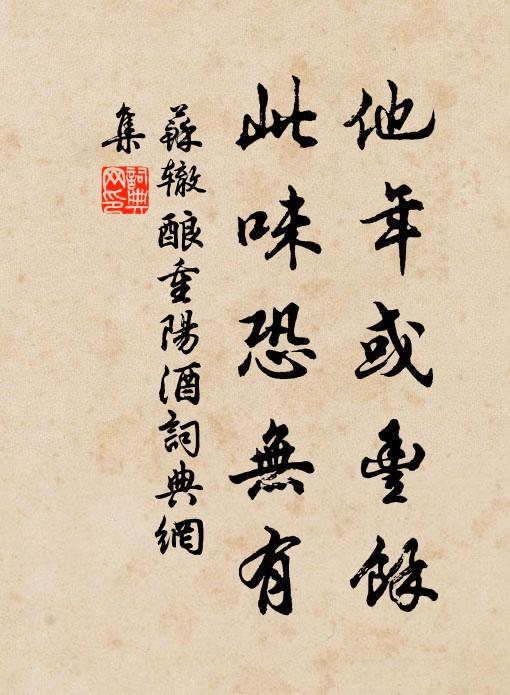 他年或豐餘
此味恐無有
蘇辙酿重陽酒詞典網
集
詞典
网印